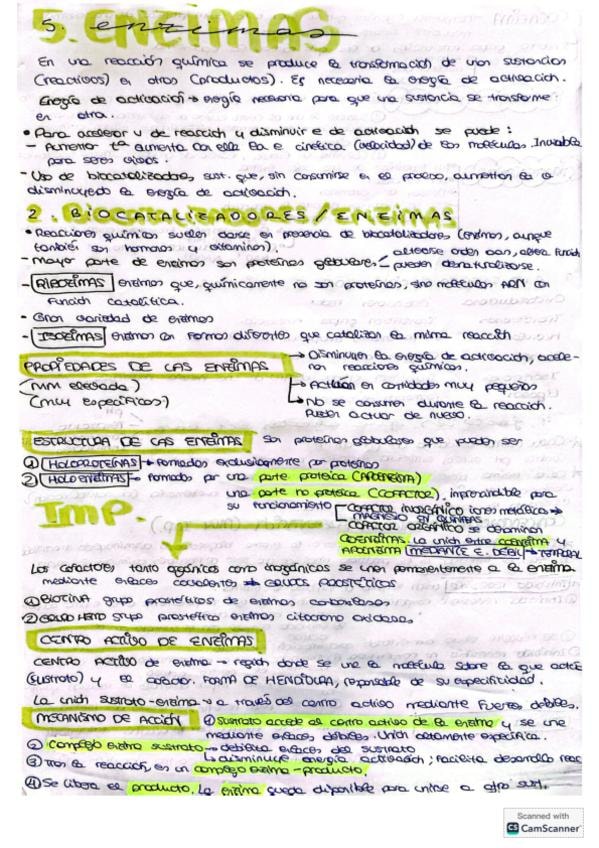 5. enzimas
En una reacción química se produce la transformación de unas sustancias
(reactivos) en otras (productos). Es necesaria la energía de activación.
Energía de activación → energía necesaria para que una sustancia se transforme
en otra.
• Para acelerar v de reacción y disminuir e de activación se puede:
- Aumento tª aumenta con ella la e cinética (velocidad) de las moléculas. Inviable
para seres vivos.
- Uso de biocatalizadores, sust. que, sin consumirse en el proceso, aumentan la v
disminuyendo la energía de activación.
2. BIOCATALIZADORES/ENZIMAS
• Reacciones químicas suelen darse en presencia de biocatalizadores (enzimas, aunque
también son hormonas y vitaminas).
- Mayor parte de enzimas son proteínas globulares
pueden desnaturalizarse.
- RIBOZIMAS enzimas que, químicamente no son proteínas, sino moléculas ARN con
función catalítica.
- Gran variedad de enzimas
- ISOZIMAS enzimas con formas diferentes que catalizan la misma reacción
PROPIEDADES DE LAS ENZIMAS → Disminuyen la energía de activación, acele-
ran reacciones químicas.
(MM elevada)
→ Actúan en cantidades muy pequeñas
(muy específicas)
→ No se consumen durante la reacción.
Pueden actuar de nuevo.
ESTRUCTURA DE LAS ENZIMAS Son proteínas globulares que pueden ser
① HOLOPROTEÍNAS → formadas exclusivamente por proteínas
② HOLOENZIMAS → formadas por una parte proteica (APOENZIMA)
una parte no proteica (COFACTOR), imprescindible para
su funcionamiento
COFACTOR INORGÁNICO iones metálicos →
MAGNESIO EN QUINASAS
COFACTOR ORGÁNICO se denominan
COENZIMAS. La unión entre coenzima y
APOENZIMA MEDIANTE E. DÉBIL → TEMPORAL
Imp.
Los cofactores tanto orgánicos como inorgánicos se unen permanentemente a la enzima
mediante enlaces covalentes → GRUPOS PROSTÉTICOS
① BIOTINA grupo prostéticos de enzimas carboxilasas
② GRUPO HEMO grupo prostético enzimas citocromo oxidasas
CENTRO ACTIVO DE ENZIMAS
CENTRO ACTIVO de enzima → región donde se une la molécula sobre la que actúa
(sustrato) y el cofactor. FORMA DE HENDIDURA, responsable de su especificidad.
La unión sustrato-enzima → a través del centro activo mediante fuerzas débiles.
MECANISMO DE ACCIÓN ① Sustrato accede al centro activo de la enzima y se une
mediante enlaces débiles. Unión altamente específica.
② Complejo enzima sustrato → debilita enlaces del sustrato
→ disminuye energía activación; facilita desarrollo reac
③ Tras la reacción, es un complejo enzima-producto.
④ Se libera el producto. La enzima queda disponible para unirse a otro sust.
Scanned with
CS CamScanner